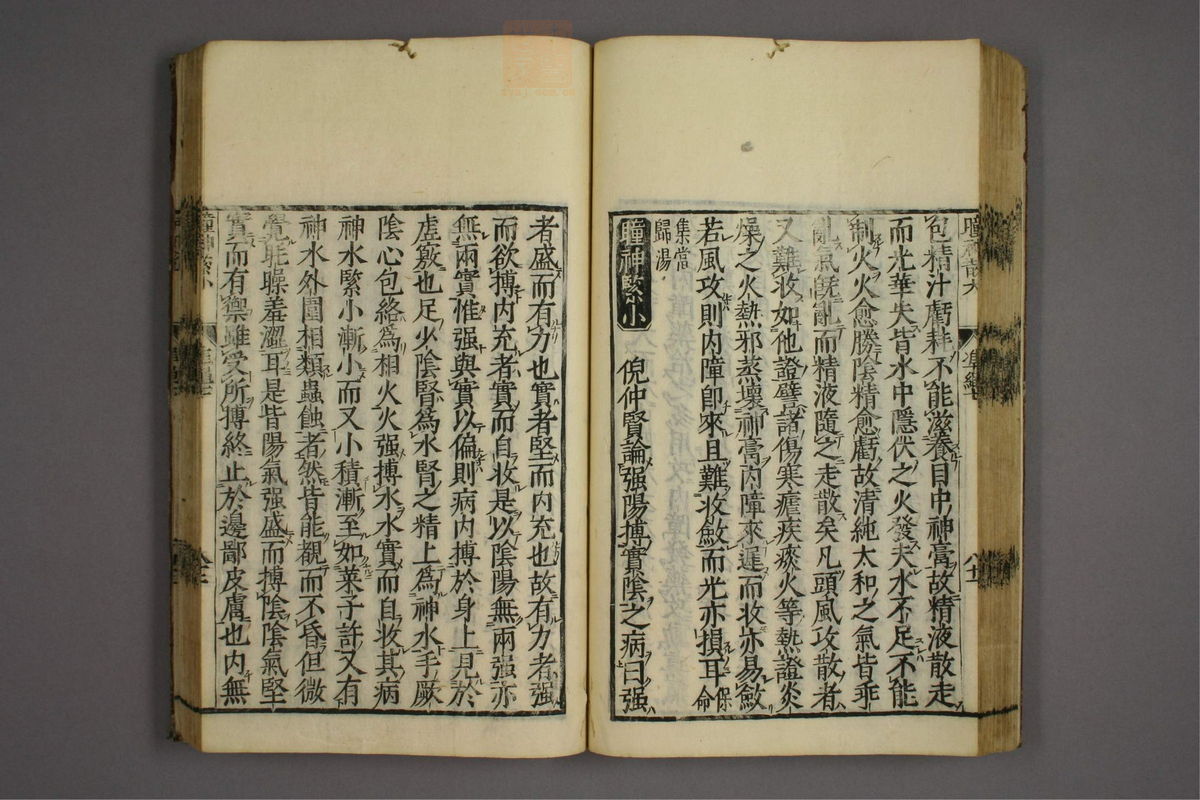 包精汁虧耗不能滋養目中神膏故精液散走
而光華失皆水中隱伏之火發夫水不足不能
制火火愈勝陰精愈虧故清純太和之氣皆乖
亂氣旣亂而精液隨之走散矣凡頭風攻散者
又難收如他證譬諸傷寒瘧疾痰火等熱證炎
燥之火熱邪蒸壞神膏內障來遲而收亦易斂
若風攻則內障即來且難收斂而光亦損耳保命
集當歸湯
瞳神緊小 倪仲賢論强陽摶實陰之病曰强
者盛而有力也實者堅而內充也故有力者强
而欲摶內充者實而自收是以陰陽無兩强亦
無兩實惟强與實以偏則病內摶於身上見於
虛竅也足少陰腎為水腎之精上為神水手厥
陰心包絡為相火火强摶水水實而自收其病
神水緊小漸小而又小積漸至如菜子許又有
神水外圍相類蟲蝕者然皆能覩而不昏但微
覺眊矂羞澀耳是皆陽氣强盛而摶陰陰氣堅
實而有禦雖受所摶終止於邊鄙皮膚也內無